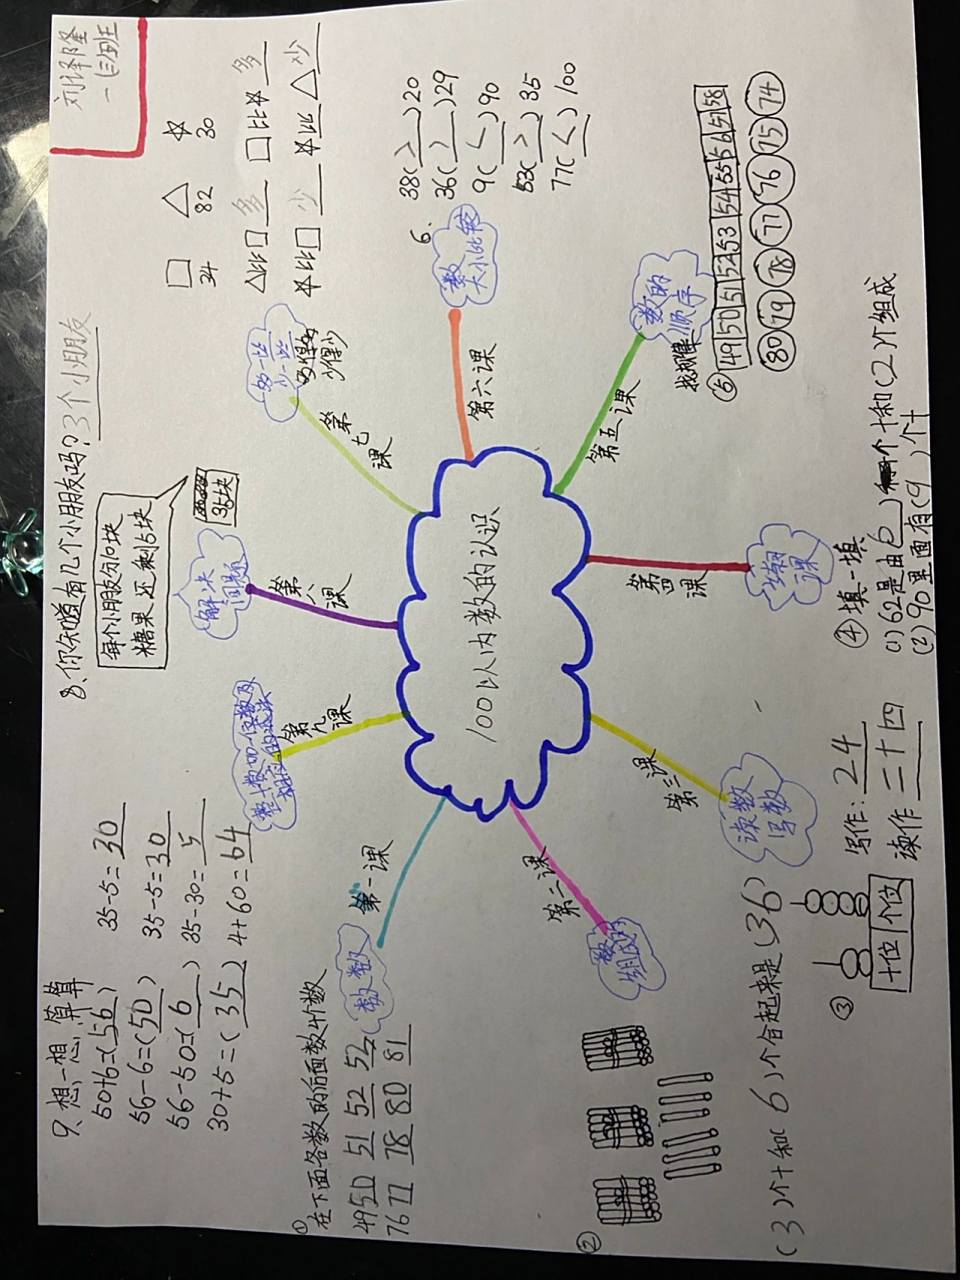 刘译隆
一(三)班
100以内数的认识
第一课
数数
①
在下面各数的后面数4个数
49 50 51 52 52
76 77 78 80 81
第二课
数的
组成
②
(3)个十和(6)个合起来是(36)
第三课
读数
写数
③
十位 个位
写作:24
读作 二十四
第四课
④填一填
(1)62是由(6)个十和(2)个组成
(2)90里面有(9)个十
第五课
数的
顺序
找规律
⑤ 49 50 51 52 53 54 55 56 57 58
80 79 78 77 76 75 74
第六课
数
大小比较
6、
38(>)20
36(>)29
9(<)90
53(>)35
77(<)100
第七课
多一些
少一些
多得多
少得少
□ △ ☆
34 82 30
△比□ 多 □比☆ 多
☆比□ 少 ☆比△ 少
第八课
解决
问题
8、你知道有几个小朋友吗?3个小朋友
每个小朋友分10块
糖果还剩5块
35块
第九课
整十数加一位数及
相应的减法
9、想一想,算算
50+6=(56) 35-5=30
56-6=(50) 35-5=30
56-50=(6) 35-30=5
30+5=(35) 4+60=64